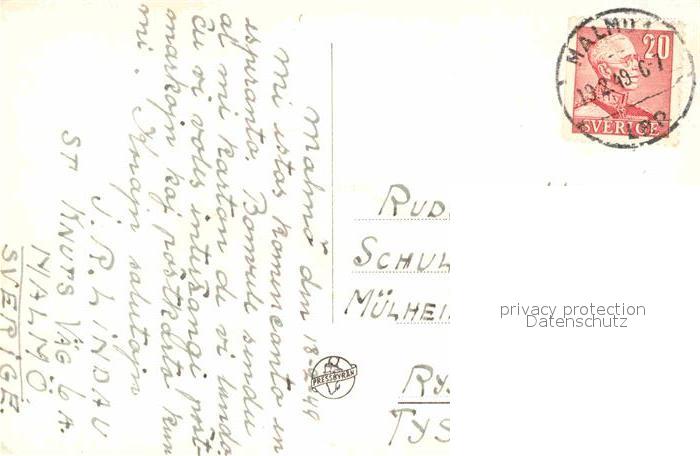 Malmö den 18-2-49
Mi estas komencanto en
esperanto. Bonvole sendu
al mi karton de vi lando.
Ĉu vi volas interŝanĝi post-
markojn kaj poŝtkarto kun
mi. Amajn salutojn
J. R. LINDAU
ST KNUTS VÄG 6 A.
MALMÖ
SVERIGE.
MALMÖ 1
19.2.49.
LBR
20
SVERIGE
PRESSBYRÅN
RUD
SCHUL
MÜLHEI
privacy protection
Datenschutz
RY
TYS